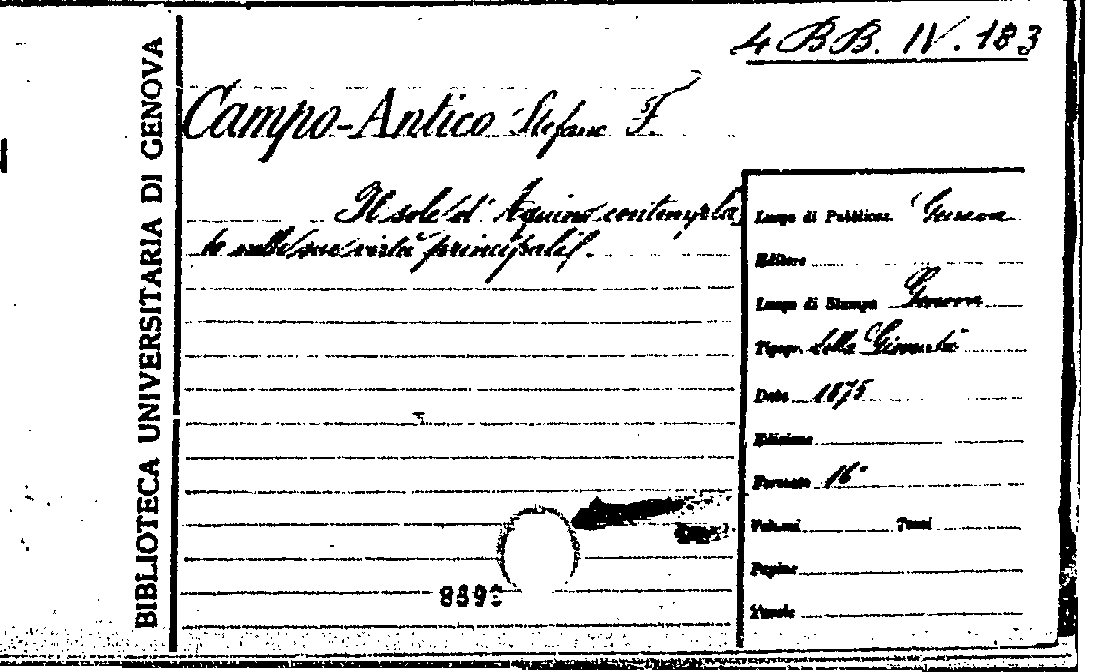 4 BB. IV. 183
BIBLIOTECA UNIVERSITARIA DI GENOVA
Campo-Antico Stefano F.
Il sole d'Aquino contempla
to nelle sue virtù principali.
Luogo di Pubblicaz. Genova
Editore
Luogo di Stampa Genova
Tipogr. della Gioventù
Data 1875
Edizione
Formato 16°
Volumi Tomi
Pagine
Tavole